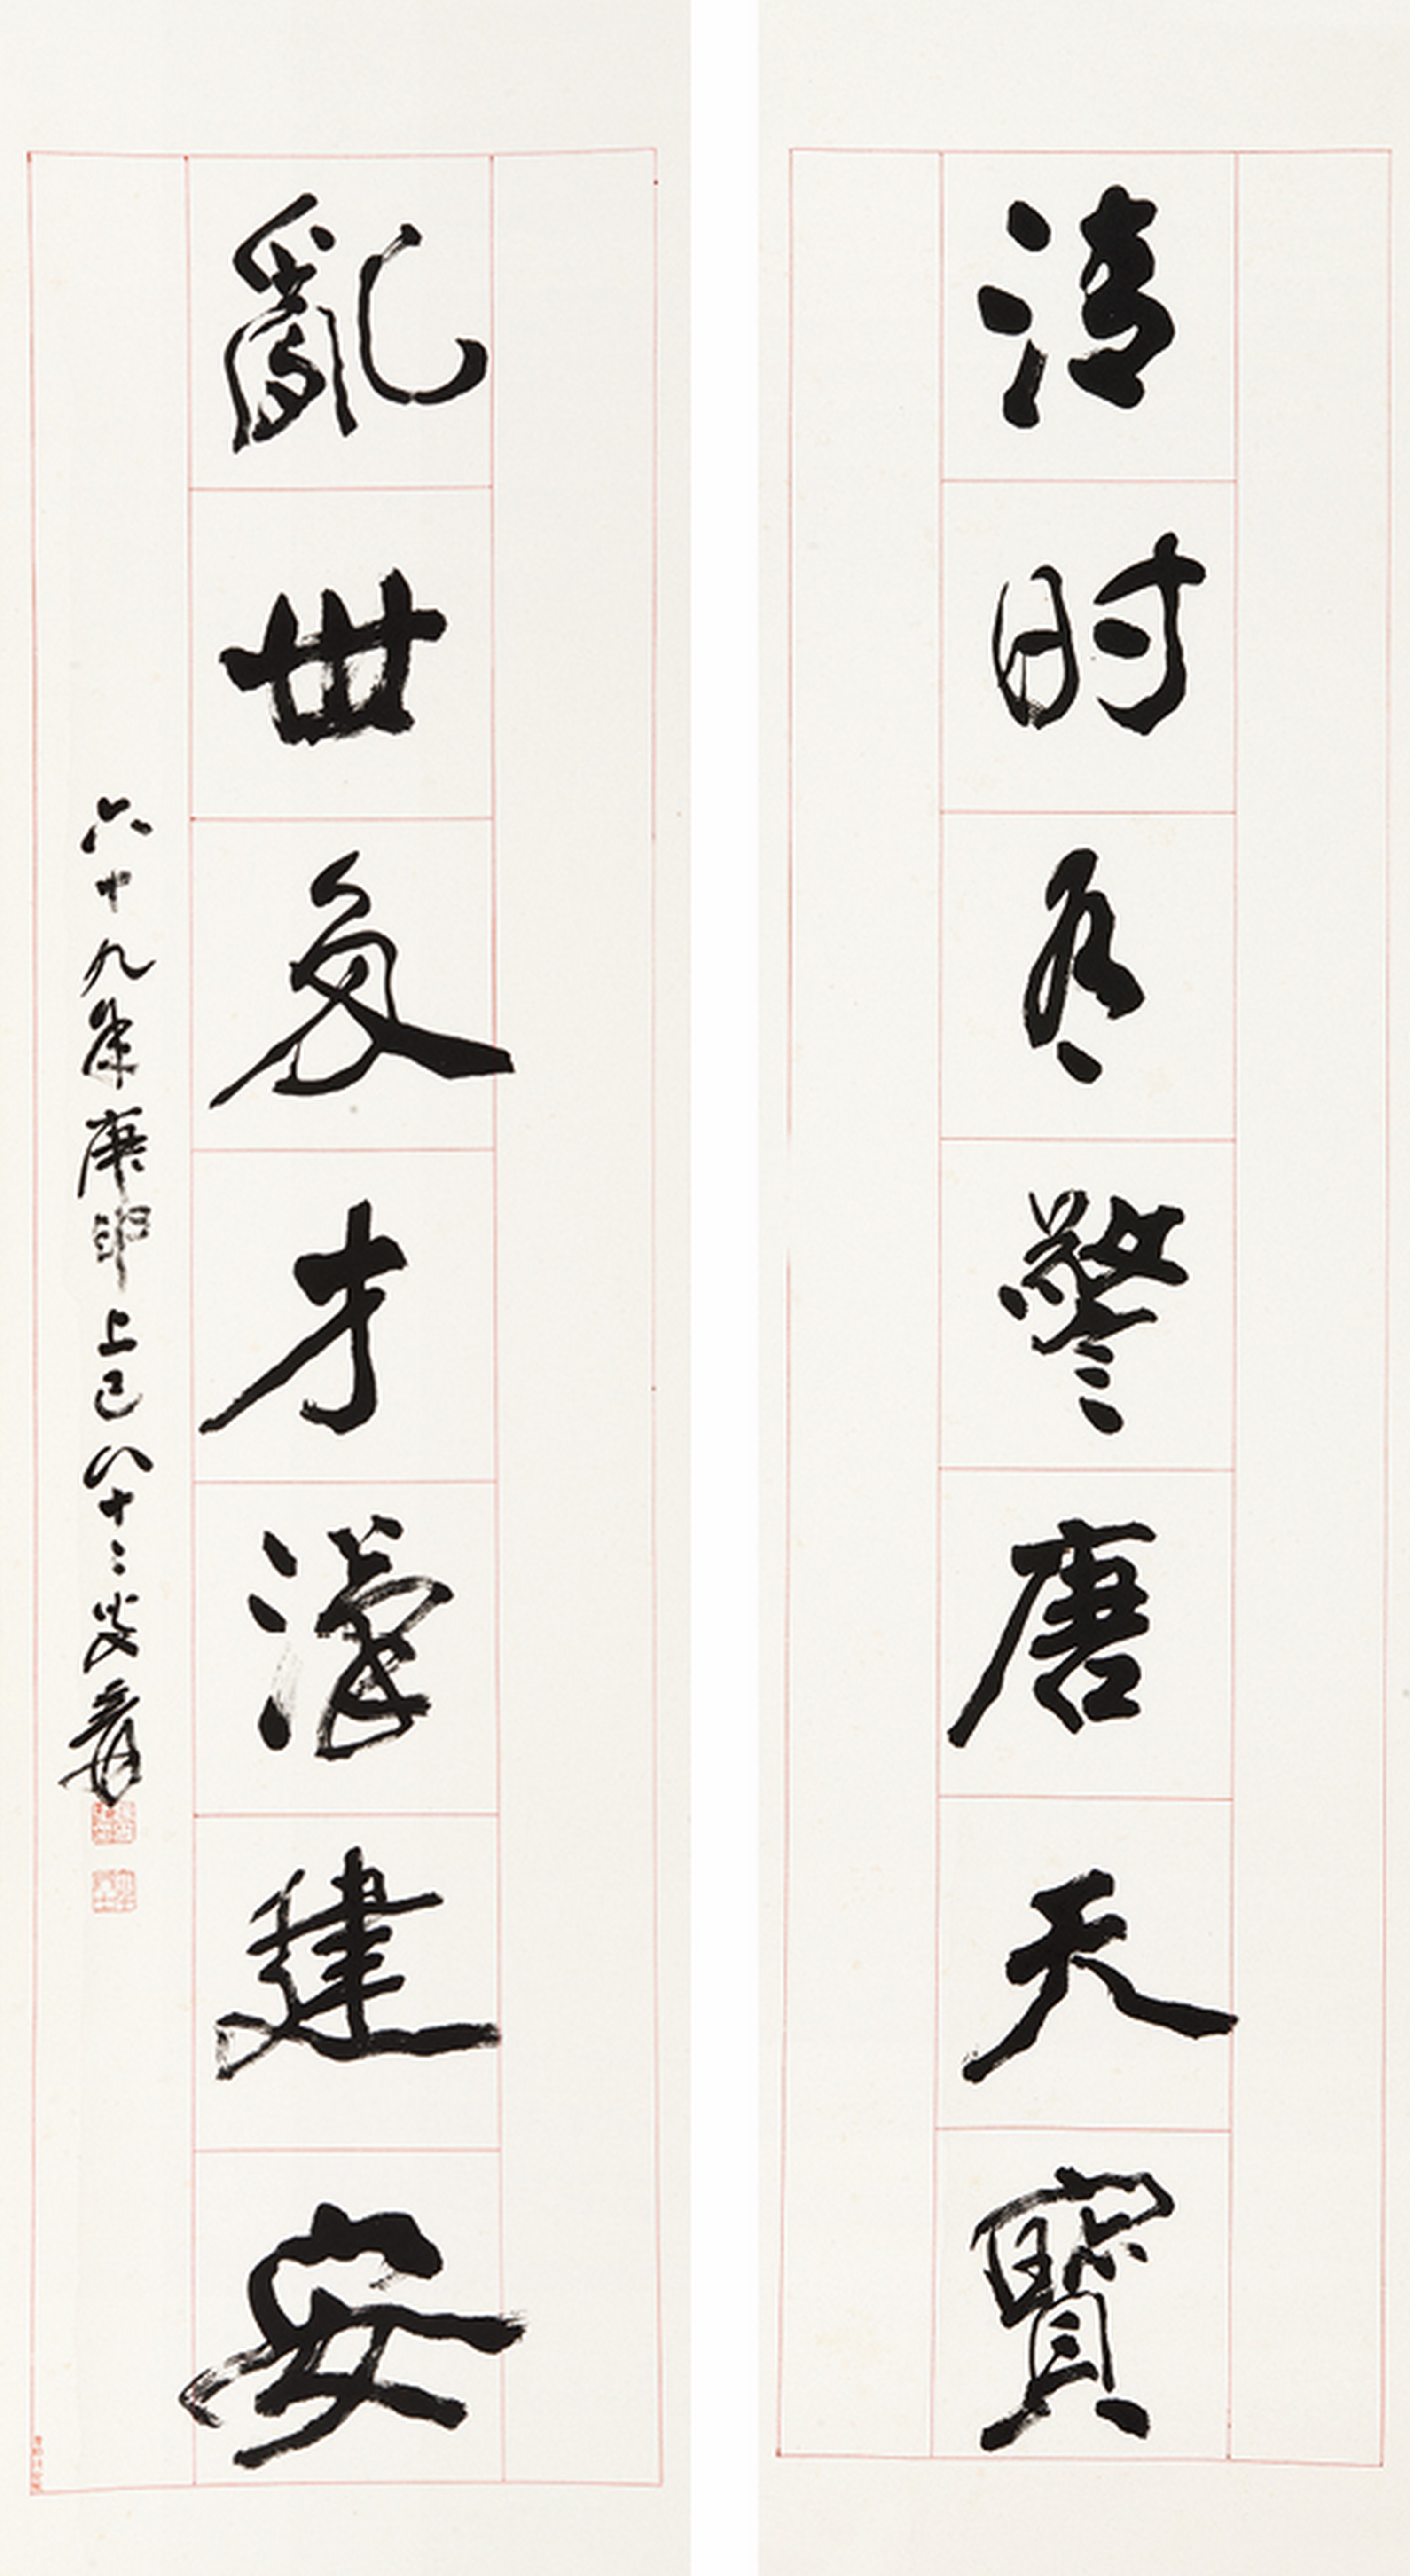 清時有警唐天寶
亂世多才漢建安
六十九年庚申上巳八十二叟爰